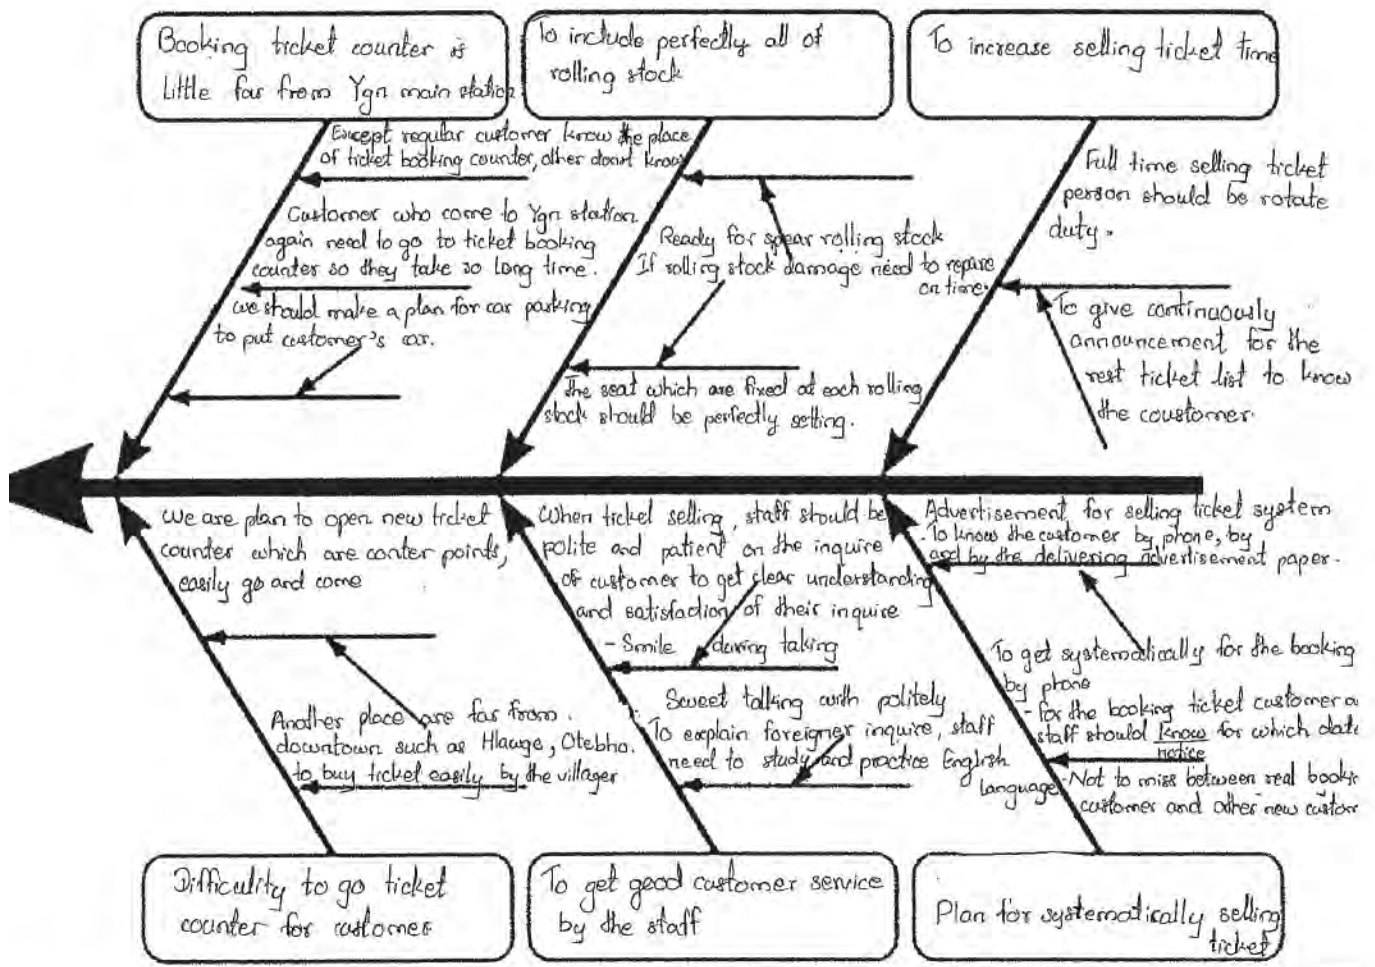 Booking ticket counter is
Little far from Ygn main station
To include perfectly all of
rolling stock
To increase selling ticket time
Except regular customer know the place
of ticket booking counter, other don't know
Customer who come to Ygn station
again need to go to ticket booking
counter so they take so long time.
we should make a plan for car parking
to put customer's car.
Ready for spear rolling stock
If rolling stock damage need to repaire
on time.
The seat which are fixed at each rolling
stock should be perfectly setting.
Full time selling ticket
person should be rotate
duty.
To give continuously
announcement for the
rest ticket list to know
the coustomer.
We are plan to open new ticket
counter which are conter points,
easily go and come
Another place are far from.
downtown such as Hlawge, Otebho.
to buy ticket easily by the villager
When ticket selling, staff should be
polite and patient on the inquire
of customer to get clear understanding
and satisfaction of their inquire
- Smile during taking
Sweet talking with politely
To explain foreigner inquire, staff
need to study and practice English
language
Advertisement for selling ticket system
To know the customer by phone, by
and by the delivering advertisement paper.
To get systematically for the booking
by phone
- for the booking ticket customer
staff should know for which date
notice
- Not to miss between real
customer and other new
Difficulity to go ticket
counter for customer
To get good customer service
by the staff
Plan for systematically selling
ticket